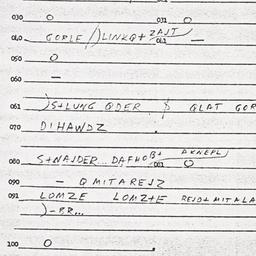 030 O 031 O
040 GORLE /)LINKQ+ ZAJT 041 —
050 O
060 —
061 )S+LUNG QDER $ GLAT GOR
070 DIHAWDZ .
080 S+NAJDER... DAFKOB+ AKNEPL) 081 O
090 — QMITAREJZ
091 LOMZE LOMZ+E REJD+MITALA
)-RR...
100 O .